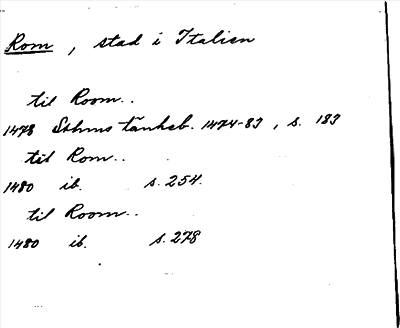 Rom, stad i Italien
til Room..
1478 Sthms tänkeb. 1474-83, s. 183
till Rom..
1480 ib. s. 254.
til Room..
1480 ib. s. 278